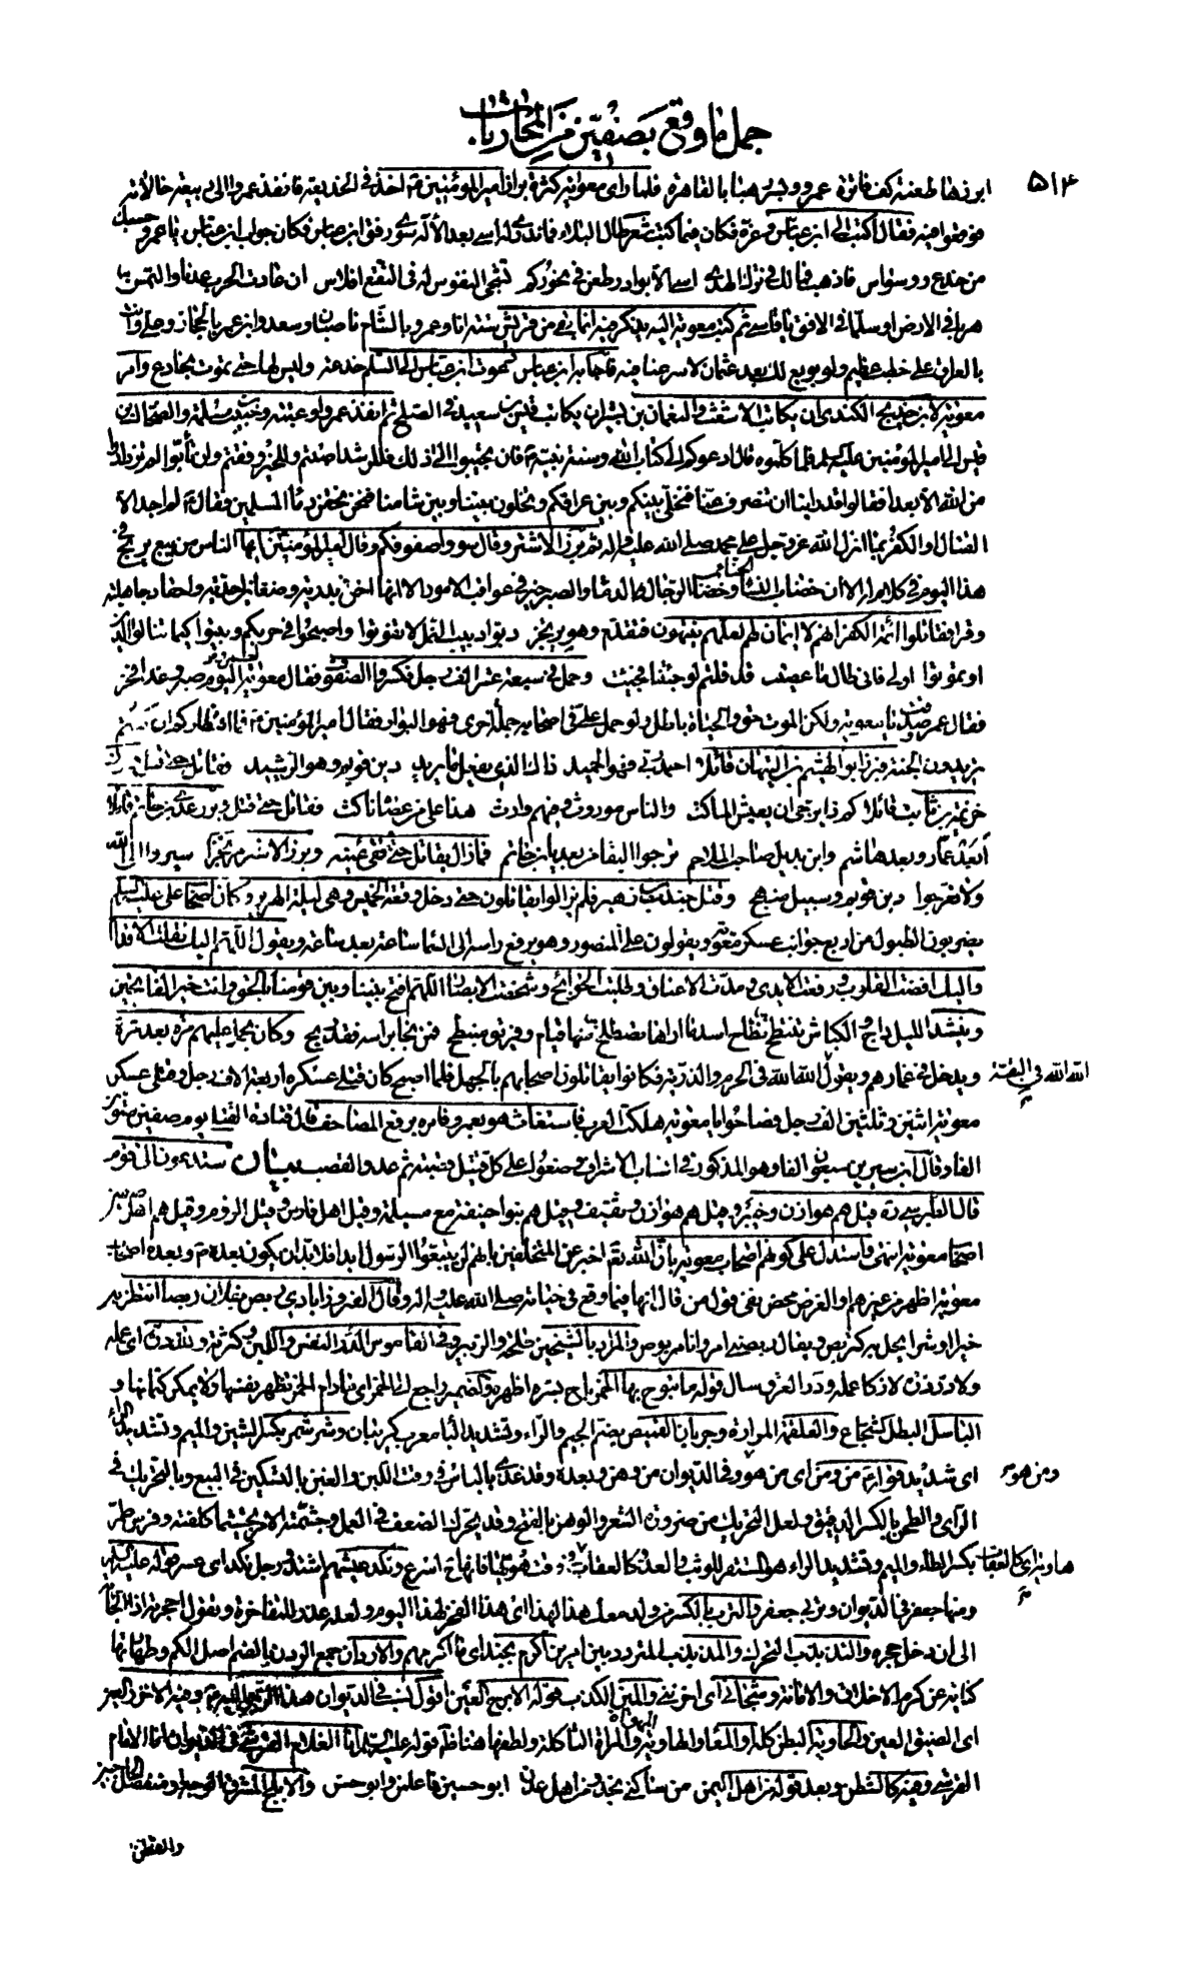 جمل ما وقع بصفين من المحاربات
۵۱۴
ابرزها طعنة كف فاترة عمرو وبسر هبنا بالقاهرة فلما راى معوية كثرة براز امير المؤمنين اخذ فى الخديعة فانفذ عمرو الى ربيعة خالا
فوضوا فيه فقال اكتب الى ابن عباس وغره فكان فيما كتب شعر طال البلاء فما ندرى له اسى بعد الاله سوى رفق ابن عباس فكان جواب ابن عباس يا عمرو حسبك
من خدع ووسواس فاذهب فما لك فى ترك الهدى اسى الا بوادر طعن فى نحوركم تشجى النفوس له فى النقع افلاس ان عادت الحرب عدنا والتمس
هربا فى الارض او سلما فى الافق يا قاسى ثم كتب معوية اليه يذكر فيه انما بقى من قريش ستة انا وعمرو بالشام ناصبان وسعد وابن عمر بالحجاز وعلى وانت
بالعراق على خطب عظيم ولو بويع لك بعد عثمان لاسرعنا فيه فاجابه ابن عباس دعوت ابن عباس الى السلم خدعة وليس لها حتى تموت بخادع وامر
معوية لابن خديج الكندى ان يكاتب الاشعث والنعمان بن بشير ان يكاتب قيس بن سعيد فى الصلح ثم انفذ عمرا وعتبة وحبيب بن مسلمة والضحاك بن
قيس الى امير المؤمنين عليه السلم فلما كلموه قال ادعوكم الى كتاب الله وسنة نبيه فان تجيبوا الى ذلك فللرشد اصبتم وللخير وفقتم وان تابوا لم تزدادوا
من الله الا بعدا فقالوا قد راينا ان تنصرف عنا فنخلى بينكم وبين عراقكم وتخلون بيننا وبين شامنا فنحن نحقن دماء المسلمين فقال لم اجد الا
القتال او الكفر بما انزل الله عز وجل على محمد صلى الله عليه واله ثم برز الاشتر وقال سووا صفوفكم وقال امير المؤمنين ايها الناس من يبع يربح فى
هذا اليوم فى كلام له الا ان خضاب النساء الحناء وخضاب الرجال الدماء والصبر خير فى عواقب الامور الا انها احن بدرية وضغاين احدية واحقاد جاهلية
وقرا فقاتلوا ائمة الكفر انهم لا ايمان لهم لعلهم ينتهون فتقدم وهو يرتجز دبوا دبيب النمل لا تفوتوا واصبحوا فى حربكم وبيتوا كيما تنالوا الدين
او تموتوا اولى فانى طال ما عصيت قد قلتم لو جئتنا فجيت وحمل فى سبعة عشر الف رجل فكسروا الصفوف فقال معوية اليوم صبر وغدا فخر
فقال عمرو صدقت يا معوية ولكن الموت حق والحياة باطل ولو حمل على فى اصحابه حملة اخرى فهو البوار فقال امير المؤمنين فما انتظاركم ان كنتم
يريدون الجنة فبرز ابو الهيثم بن التيهان قائلا احمد ربى فهو الحميد ذاك الذى يفعل ما يريد دين قويم وهو الرشيد فقاتل حتى
خزيمة بن ثابت قائلا كم ذا يرجى ان يعيش الماكث والناس موروث ومنهم وارث هذا على من عصاه ناكث فقاتل حتى قتل وبرز عدى بن حاتم
ابعد عمار وبعد هاشم وابن بديل صاحب الملاحم نرجوا البقاء من بعد يا ابن حاتم فما زال يقاتل حتى فقئت عينه وبرز الاشتر مرتجزا سيروا الى الله
ولا تعرجوا دين قويم وسبيل منهج وقتل جندب بن زهير فلم يزالوا يقاتلون حتى دخل وقعة الخميس وهى ليلة الهرير وكان اصحاب على عليه السلم
يضربون الطبول من اربع جوانب عسكر معوية ويقولون على المنصور وهو يرفع راسه الى السماء ساعة بعد ساعة ويقول اللهم اليك نقلت الاقدام
واليك افضت القلوب ورفعت الايدى ومدت الاعناق وطلبت الحوائج وشخصت الابصار اللهم افتح بيننا وبين قومنا بالحق وانت خير الفاتحين
وينشد الليل داج والكباش تنتطح نطاح اسد ما اراها تصطلح منها قيام وفريق منبطح فمن نجا براسه فقد ربح وكان يحمل عليهم مرة بعد مرة
ويدخل فى غمارهم ويقول الله الله فى الحرم والذرية فكانوا يقاتلون اصحابهم بالجهل فلما اصبح كان قتلى عسكره اربعة الاف رجل وقتلى عسكر
الله الله فى البقية
معوية اثنين وثلثين الف رجل فصاحوا يا معوية هلكت العرب فاستغاث هو بعمرو فامره برفع المصاحف قال قتادة القتلى يوم صفين ستون
الفا وقال ابن سيرين سبعون الفا وهو المذكور فى انساب الاشراف وضعوا على كل قتيل قصبة ثم عدوا القصب بيان ستدعون الى قوم
قال الطبرسى ره قيل هم هوازن وحنين وقيل هم هوازن وثقيف وقيل هم بنو حنيفة مع مسيلمة وقيل اهل فارس وقيل الروم وقيل هم اهل صفين
اصحاب معوية انتهى واستدل على كونهم اصحاب معوية بان الله تعالى اخبر عن المتخلفين بانهم لن يتبعوا الرسول ابدا فلا بد ان يكون بعده وبعده اصحاب
معوية اظهر من غيرهم والغرض محض نفى قول من قال انها فيما وقع فى حياته صلى الله عليه واله وقال الفيروزابادى ربص بفلان ربصا انتظر به
خيرا او شرا يحل به كتربص ويقال ربصنى امر وانا مربوص والمراد بالشيخين طلحة والزبير وفى القاموس الدر النفس واللبن وكثرته ولله دره اى عمله
ولا در دره لا زكا عمله ودر العرق سال قوله ما نبوح بها الخمر باح بسره اظهره والضمير راجع الى الخمر اى ما دام الخمر تظهر بنفسها ولا يمكن كتمانها و
الباسل البطل الشجاع والعلقمة المرارة وجربان القميص بضم الجيم والراء وتشديد الباء معرب كريبان وشر شمر بكسر الشين والميم وتشديد الراء
اى شديد قوله من ومن اى من هو وفى الديوان من وهن وبعده وقد غدى بالباس فى وقت اللبن والغبن بالتسكين فى البيع وبالتحريك فى
ومن هو
الراى والطحن بالكسر الدقيق ولعل التحريك من ضرورة الشعر والوهن بالفتح وقد يحرك الضعف فى العمل وجشمته الامر تجشيما كلفته وفرس طمر
بكسر الطاء والميم وتشديد الراء هو المستفز للوثب والعدو كالعقاب وقت هويها فانها ح اسرع ونكد عيشهم اشتد ورجل نكد اى عسر قوله عليه السلم
هاوية اى كالعقاب
ومنها جعفر فى الديوان ومن بنى جعفر والترب بالكسر من ولد معك هذا لهذا اى هذا الفخر لهذا اليوم ولعله عدو للمفاخرة ويقول احجرته اذا الجاته
الى ان دخل حجره والتذبذب التحرك والمذبذب المتردد بين امرين اكرم بجند اى ما اكرمهم والاردان جمع الردن بالضم اصل الكم وطهارتها
كناية عن كرم الاخلاق والامانة وشجانى اى احزننى والمين الكذب قوله الابرج العين اقول فى الديوان
اى الضيق العين والحاوية البطن كله او المعا والهاوية والمراة الثاكلة ولطفها هنا ظاهر قوله عليه السلم انا الغلام القرشى فى الديوان انا الامام
القرشى وبعد قوله من اهل اليمن من ساكنى نجد ومن اهل عدن ابو حسين فاعلمن وابو حسن والابلج المشرق الوجه
والقطن